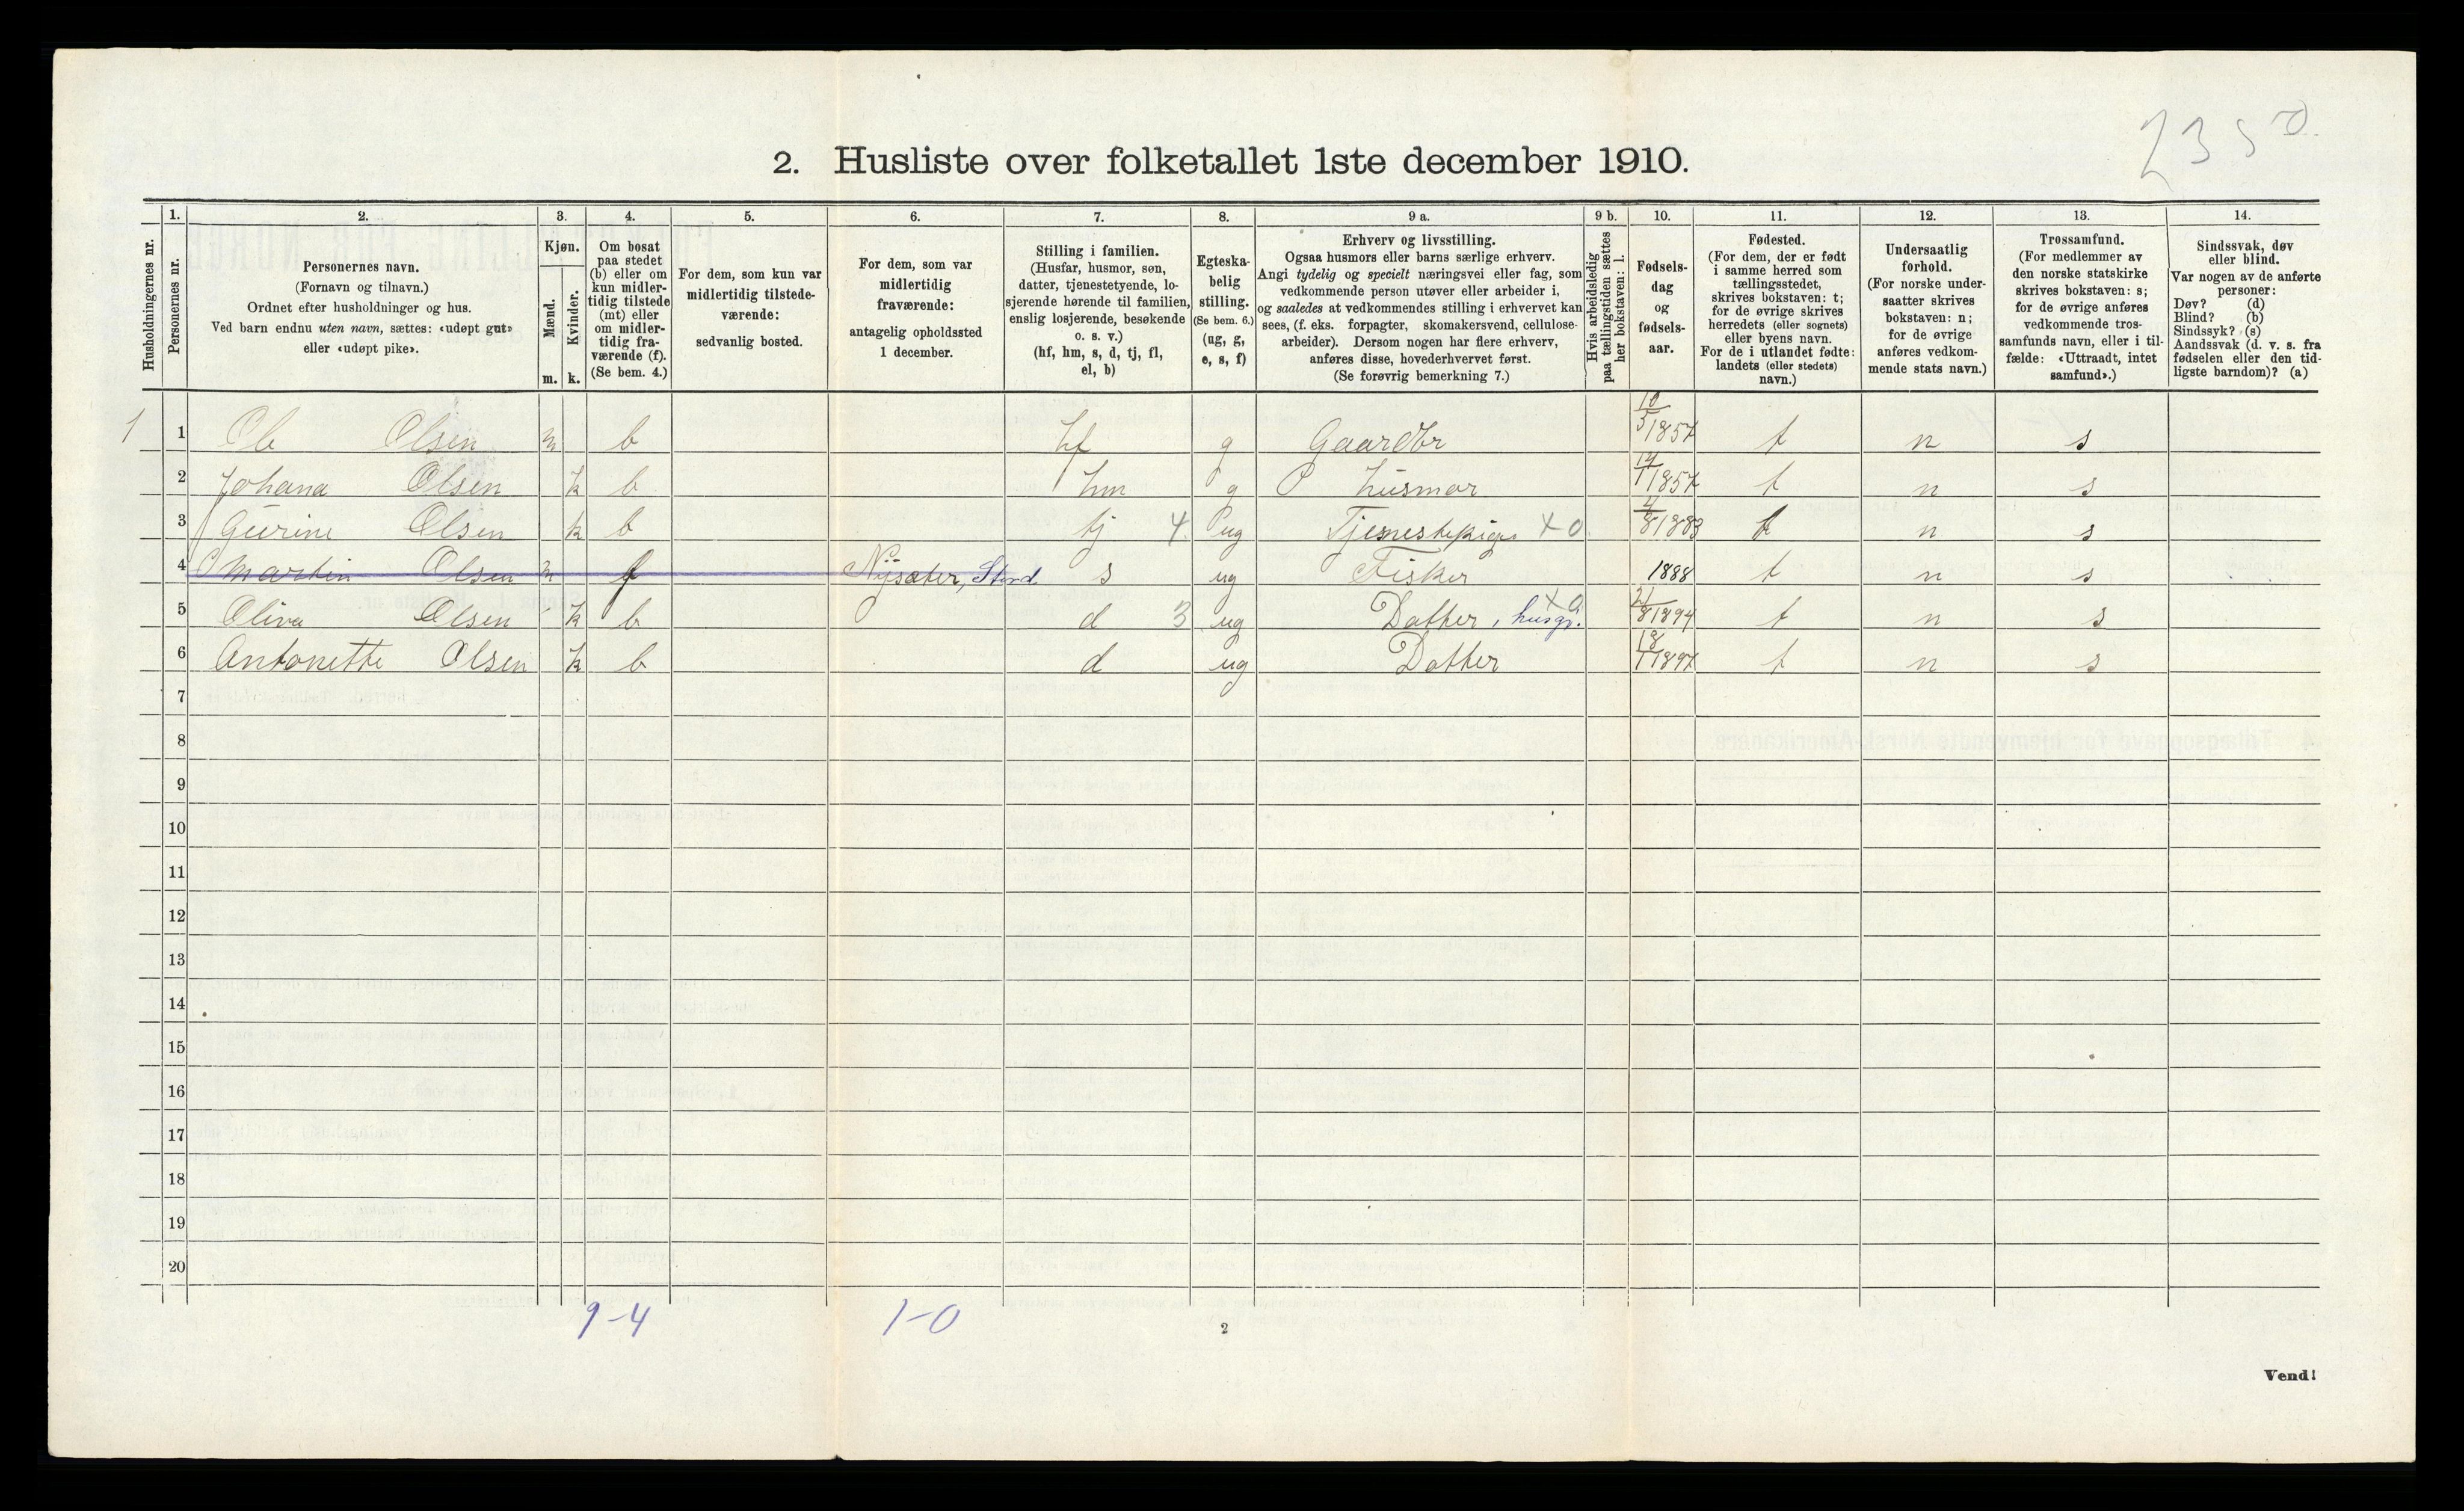 2350
2. Husliste over folketallet 1ste december 1910.
Husholdningernes nr.
1.
Personernes nr.
2.
Personernes navn.
(Fornavn og tilnavn.)
Ordnet efter husholdninger og hus.
Ved barn endnu uten navn, sættes: «udøpt gut»
eller «udøpt pike».
3.
Kjøn.
Mænd.
Kvinder.
m.
k.
4.
Om bosat
paa stedet
(b) eller om
kun midler-
tidig tilstede
(mt) eller
om midler-
tidig fra-
værende (f).
(Se bem. 4.)
5.
For dem, som kun var
midlertidig tilstede-
værende:
sedvanlig bosted.
6.
For dem, som var
midlertidig
fraværende:
antagelig opholdssted
1 december.
7.
Stilling i familien.
(Husfar, husmor, søn,
datter, tjenestetyende, lo-
sjerende hørende til familien,
enslig losjerende, besøkende
o. s. v.)
(hf, hm, s, d, tj, fl,
el, b)
8.
Egteska-
belig
stilling.
(Se bem. 6.)
(ug, g,
e, s, f)
9 a.
Erhverv og livsstilling.
Ogsaa husmors eller barns særlige erhverv.
Angi tydelig og specielt næringsvei eller fag, som
vedkommende person utøver eller arbeider i,
og saaledes at vedkommendes stilling i erhvervet kan
sees, (f. eks. forpagter, skomakersvend, cellulose-
arbeider). Dersom nogen har flere erhverv,
anføres disse, hovederhvervet først.
(Se forøvrig bemerkning 7.)
9 b.
Hvis arbeidsledig
paa tællingstiden sættes
her bokstaven: l.
10.
Fødsels-
dag
og
fødsels-
aar.
11.
Fødested.
(For dem, der er født
i samme herred som
tællingsstedet,
skrives bokstaven: t;
for de øvrige skrives
herredets (eller sognets)
eller byens navn.
For de i utlandet fødte:
landets (eller stedets)
navn.)
12.
Undersaatlig
forhold.
(For norske under-
saatter skrives
bokstaven: n;
for de øvrige
anføres vedkom-
mende stats navn.)
13.
Trossamfund.
(For medlemmer av
den norske statskirke
skrives bokstaven: s;
for de øvrige anføres
vedkommende tros-
samfunds navn, eller i til-
fælde: «Uttraadt, intet
samfund».)
14.
Sindssvak, døv
eller blind.
Var nogen av de anførte
personer:
Døv? (d)
Blind? (b)
Sindssyk? (s)
Aandssvak (d. v. s. fra
fødselen eller den tid-
ligste barndom)? (a)
1 1 Olsen m b hf g Gaardbr 10/5 1857 t n s
2 Johana Olsen k b hm g husmor 1857 t n s
3 Gurine Olsen k b tj 4 ug Tjenestepige x 0 4/8 1883 t n s
4 Martin Olsen m f Nysæter, Stord s ug Fisker 1888 t n s
5 Oliva Olsen k b d 3 ug Datter, husgr. x 0 21/8 1894 t n s
6 Antonette Olsen k b d ug Datter 18/1 1897 t n s
7
8
9
10
11
12
13
14
15
16
17
18
19
20
1-4 1-0
2
Vend!